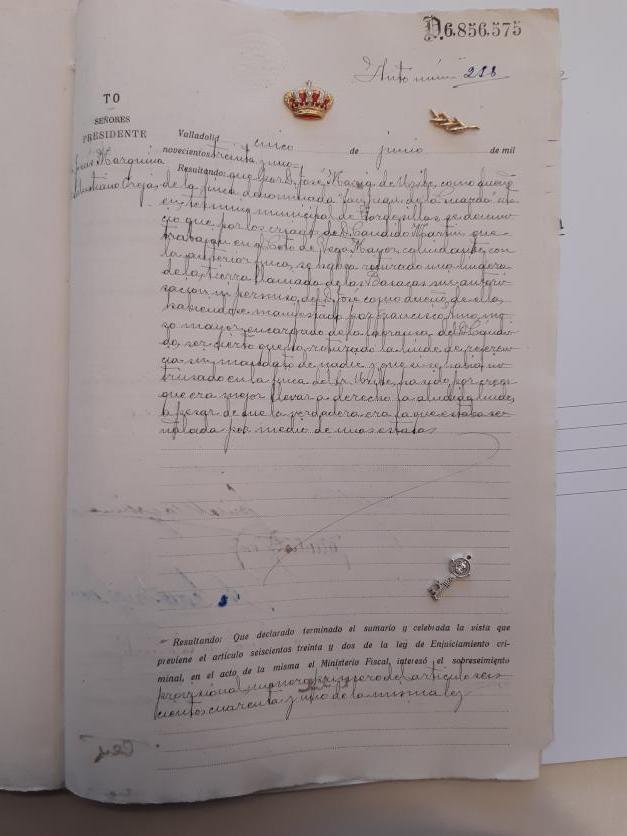 D.6.856.575
Auto núm 288
TO
SEÑORES
PRESIDENTE
Valladolid cinco de junio de mil
José Marquina
novecientos treinta y uno
Resultando: que por D. José de Uribe, como dueño
de la finca denominada
en término municipal de Tordesillas, se denun-
ció que por los criados de D. Cándido Martín, que
trabajan en el Coto de Vega Mayor, colindante con
la anterior finca, se había roturado una lindera
de la tierra llamada de las sin autori-
zación ni permiso de D. José como dueño de ella,
habiéndose manifestado por Francisco mo-
zo mayor, encargado de la labranza de D. Cándi-
do, ser cierto que ha roturado la linde de referen-
cia sin mandato de nadie y que si se había in-
trusado en la finca del Sr. Uribe, ha sido por creer
que era mejor llevar a derecho la aludida linde,
a pesar de que la verdadera era la que estaba se-
ñalada por medio de unas estacas
Resultando: Que declarado terminado el sumario y celebrada la vista que
previene el artículo seiscientos treinta y dos de la ley de Enjuiciamiento cri-
minal, en el acto de la misma el Ministerio Fiscal, interesó el sobreseimiento
provisional número primero del artículo seis-
cientos cuarenta y uno de la misma ley